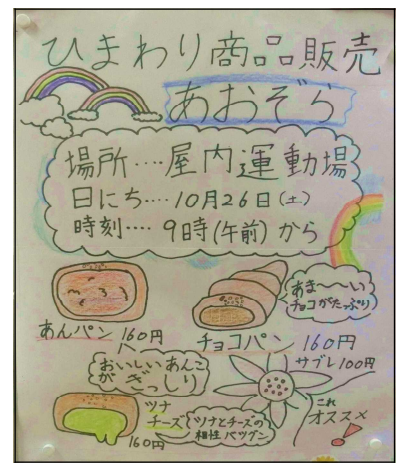 ひまわり商品販売
あおぞら
場所‥‥屋内運動場
日にち‥‥10月26日(土)
時刻‥‥9時(午前)から
あんパン 160円
おいしいあんこ
がぎっしり
チョコパン 160円
あま〜〜〜い
チョコがたっぷり
サブレ100円
これ
オススメ!
ツナ
チーズ
160円
ツナとチーズの
相性バツグン